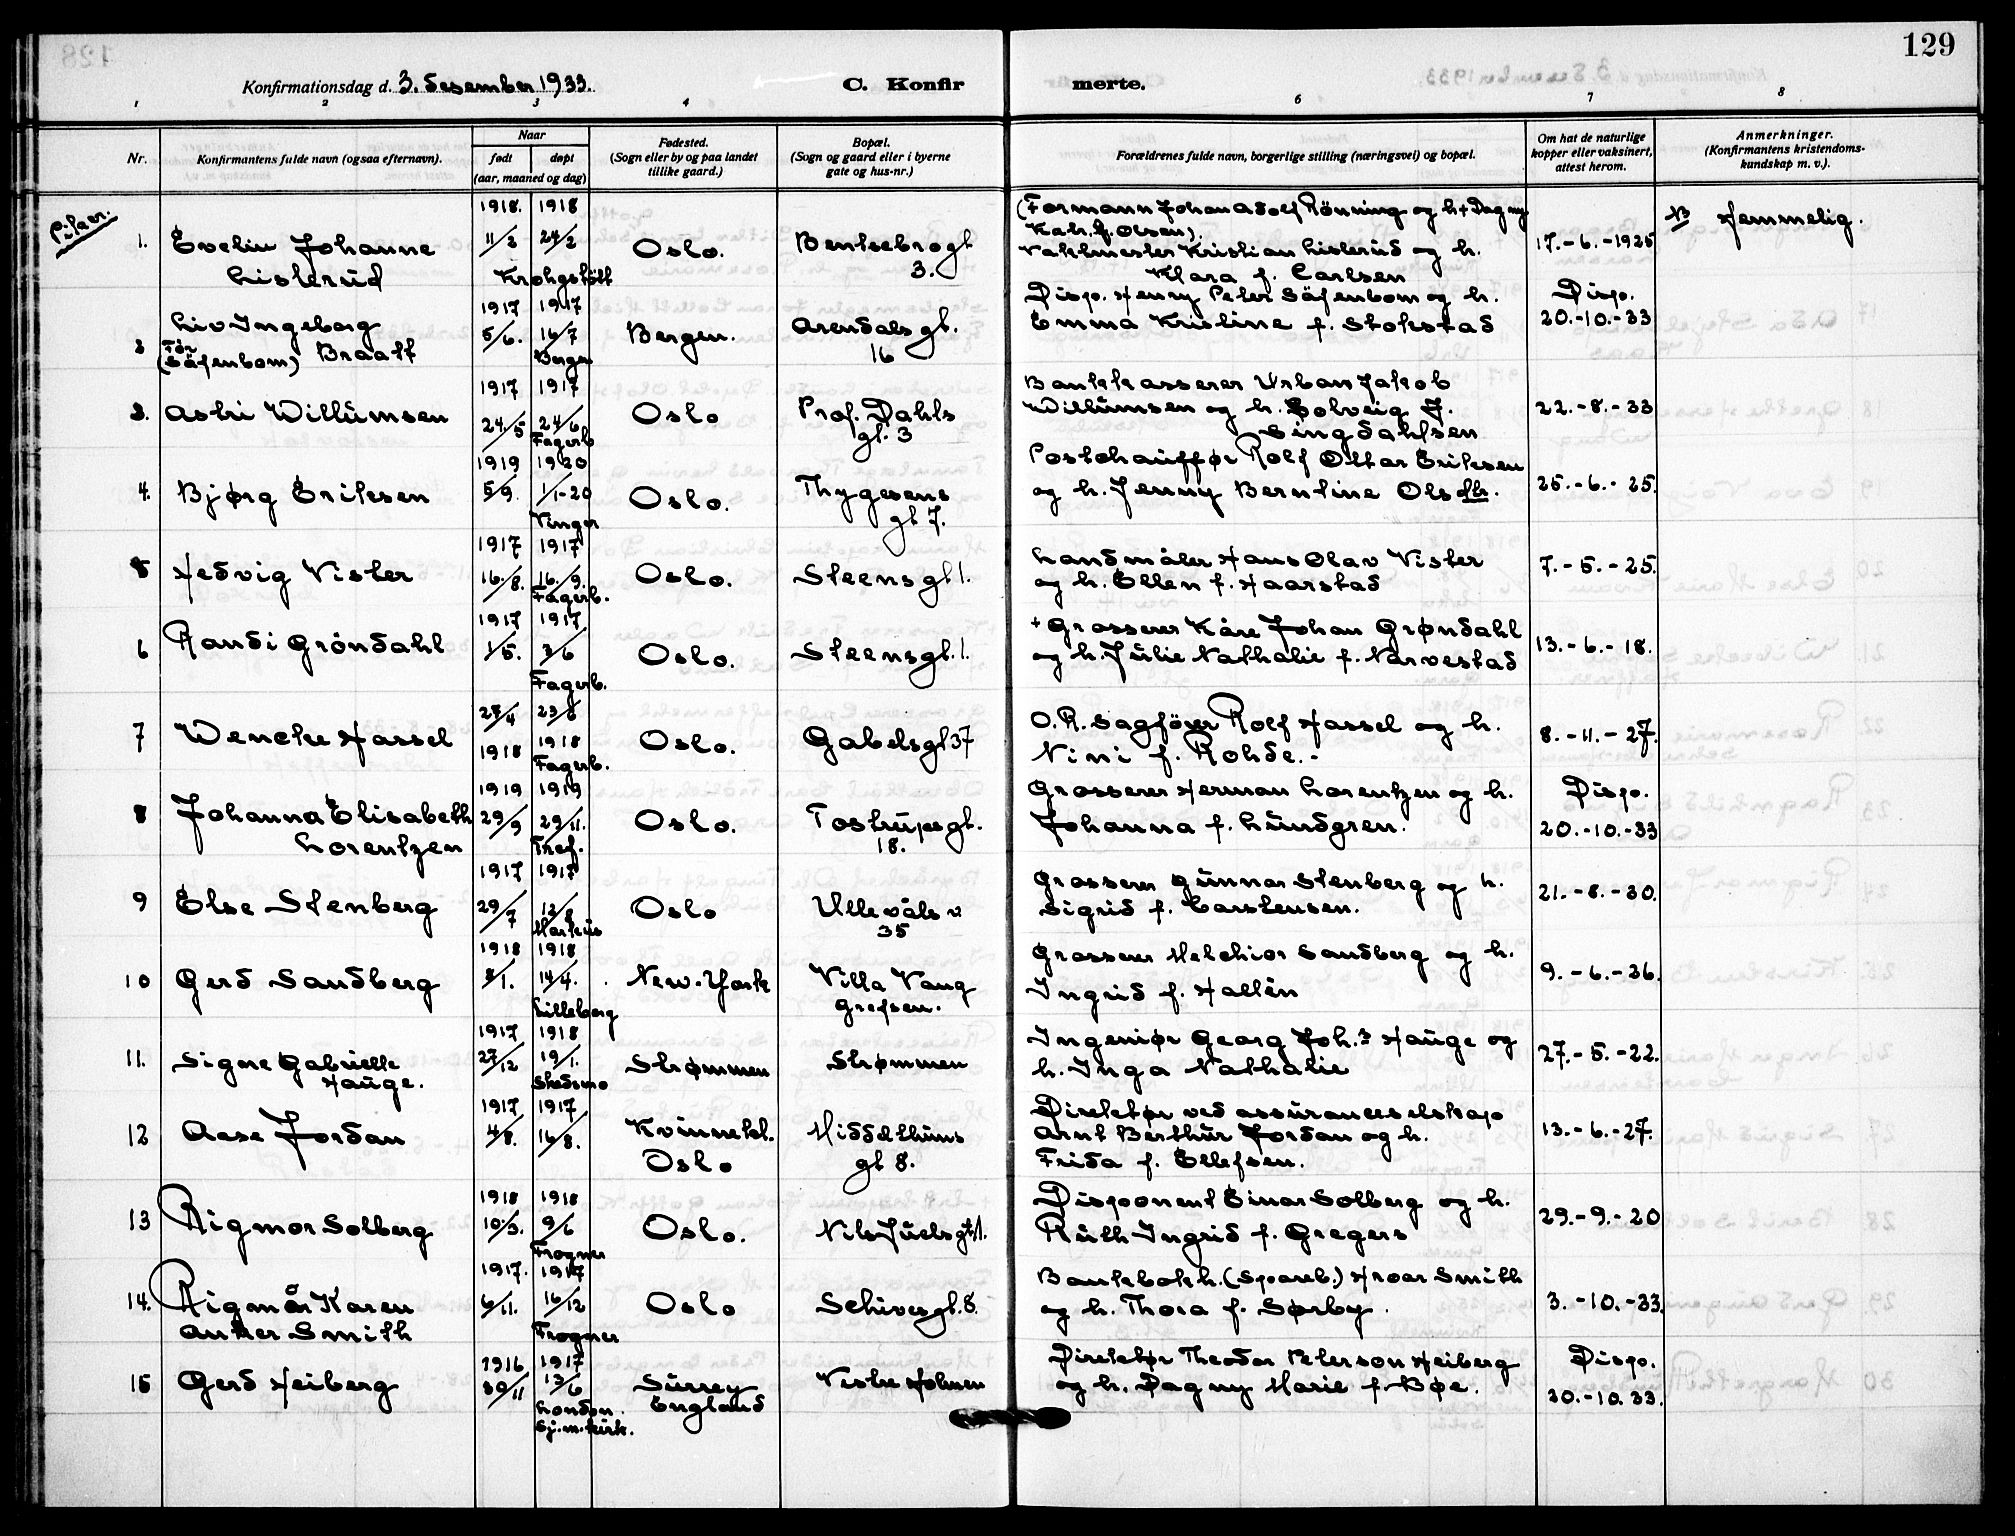 129
Konfirmationsdag d. 3. desember 1933.
C. Konfir merte.
1 2 3 4 5 6 7 8
Nr.
Konfirmantens fulde navn (ogsaa efternavn).
Naar
født døpt
(aar, maaned og dag)
Fødested.
(Sogn eller by og paa landet
tillike gaard.)
Bopæl.
(Sogn og gaard eller i byerne
gate og hus-nr.)
Forældrenes fulde navn, borgerlige stilling (næringsvei) og bopæl.
Om hat de naturlige
kopper eller vaksinert,
attest herom.
Anmerkninger.
(Konfirmantens kristendoms-
kundskap m. v.).
Piker.
1918. 1918 (Formann Johan Adolf Rönning og h + Dagny
Katr. f. Olsen). NB Hemmelig.
1. Evelin Johanne 11/2 24/2 Oslo. Bentsebrogt Vaktmester Kristian Listerud og h. 17.-6.-1925
Listerud Krohgstött 3. Klara f. Carlsen
1917 1917 Disp. Henry Peter Säfenbom og h. Disp.
2 Liv Ingeborg 5/6. 16/7 Bergen. Arendalsgt. Emma Kristine f. Stokstad 20.-10.-33
(Før Säfenbom) Braatt Bergen 16
1917 1917 Bankkasserer Urban Jakob
3. Astri Willumsen 24./5 24/6 Oslo Prof. Dahls Willumsen og h. Solveig f. 22.-8.-33
Fagerb gt. 3 Singdahlsen
1919 1920 Postchauffør Rolf Ottar Eriksen
4. Bjørg Eriksen 5/9. 1/1-20 Oslo. Thygesens og h. Jenny Berntine Olsdtr. 25.-6.-25.
Vinger gt 7.
1917 1917 Landmåler Hans Olav Vister
5 Hedvig Vister 16./8. 16./9. Oslo. Steensgt 1. og h. Ellen f. Haarstad 7.-5.-25.
Fagerb.
1917 1917 + Grosserer Kåre Johan Grøndahl
6 Randi Gröndahl 1/5. 3/6 Oslo. Steensgt. 1. og h. Julie Nathalie f. Narvestad 13.-6.-18.
Fagerb.
27/4 23/6 O.R. Sagförer Rolf Hassel og h.
7 Wencke Hassel 1918 1918 Oslo. Gabelsgt 37 Nini f. Rohde.- 8.-11.-27.
Fagerb.
1919 1919 Grosserer Herman Lorentzen og h. Disp.
8 Johanna Elisabeth 29/9 29/11. Oslo. Tostrupsgt. Johanna f. Lundgren. 20.-10.-33
Lorentzen Tref. 18.
1917 1917 Grosserer Gunnar Stenberg og h.
9 Else Stenberg 29/7 12/8 Oslo Ullevåls v Sigrid f. Carstensen. 21.-8.-30.
Markus 35
1918 1918 Grosserer Melchior Sandberg og h.
10 Gerd Sandberg 8/1. 14/4. New-York Villa Vang Ingrid f. Hallén 9.-6.-26.
Lilleborg Grefsen.
1917 1918 Ingeniør Georg Joh.s Hauge og
11. Signe Gabrielle 27/12 19/1. Strømmen Strømmen h. Inga Nathalie 27.-5.-22.
Hauge. Skedsmo
1917 1917 Direktør ved assuranceselskap
12 Aase Jordan 4/8. 16/8. Kvinnekl. Middelthuns Arnt Berthur Jordan og h. 13.-6.-27.
Oslo gt 8. Frida f. Ellefsen.
1918 1918 Disponent Einar Solberg og h.
13 Rigmor Solberg 10/3. 9/6 Oslo. Nils Juels gt 1. Ruth Ingrid f. Gregers 29.-9.-20
Frogner
1917. 1917 Bankbokh. (Spareb.) Hroar Smith
14. Rigmor Karen 6/11. 16/12 Oslo Schivesgt. 8. og h. Thora f. Sørby. 3.-10.-33.
Anker Smith Frogner
1916 1917 Direktør Theodor Peterson Heiberg Disp.
15 Gerd Heiberg 30/11 13/6 Surrey Vestre Holmen og h. Dagny Marie f. Bøe. 20.-10.33.
London. England
Sj.m.kirk.